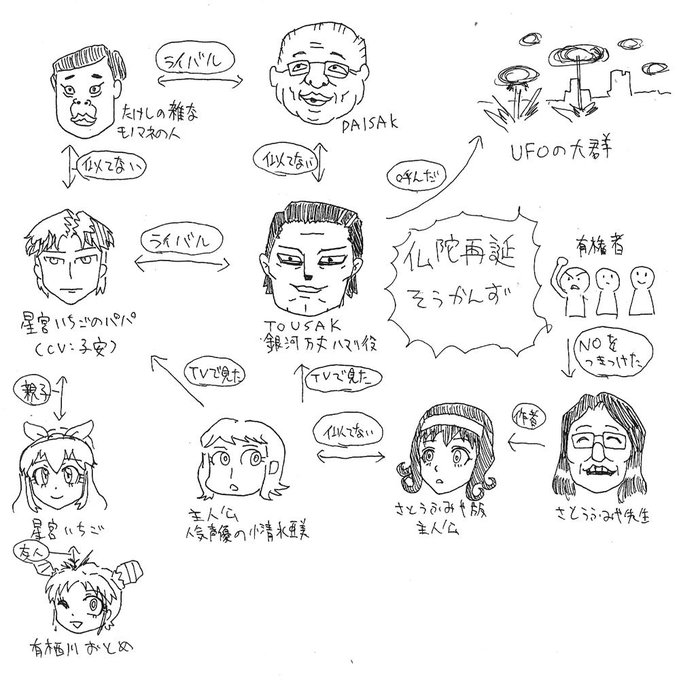 ライバル
たけしの雑な
モノマネの人
DAISAK
UFOの大群
似てない
似てない
呼んだ
ライバル
仏陀再誕
そうかんず
有権者
星宮いちごのパパ
(CV:子安)
TOUSAK
銀河万丈ハマり役
NOを
つきつけた
親子
TVで見た
TVで見た
似てない
作者
星宮いちご
主人公
人気声優の小清水亜美
さとうふみや版
主人公
さとうふみや先生
友人
有栖川おとめ